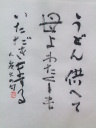 うどん供へて
母よわたくしも
いただきまする